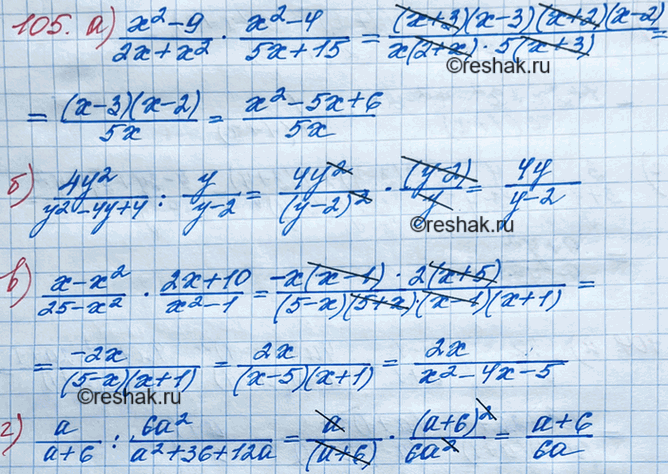 105. а) (x²-9)/(2x+x²) · (x²-4)/(5x+15) = ((x+3)(x-3)(x+2)(x-2))/(x(2+x)·5(x+3)) =
©reshak.ru
= ((x-3)(x-2))/(5x) = (x²-5x+6)/(5x)
б) (4y²)/(y²-4y+4) : y/(y-2) = (4y²)/((y-2)²) · (y-2)/y = (4y)/(y-2)
©reshak.ru
в) (x-x²)/(25-x²) · (2x+10)/(x²-1) = (-x(x-1)·2(x+5))/((5-x)(5+x)·(x-1)(x+1)) =
= (-2x)/((5-x)(x+1)) = (2x)/((x-5)(x+1)) = (2x)/(x²-4x-5)
©reshak.ru
г) a/(a+6) : (6a²)/(a²+36+12a) = a/(a+6) · ((a+6)²)/(6a²) = (a+6)/(6a)